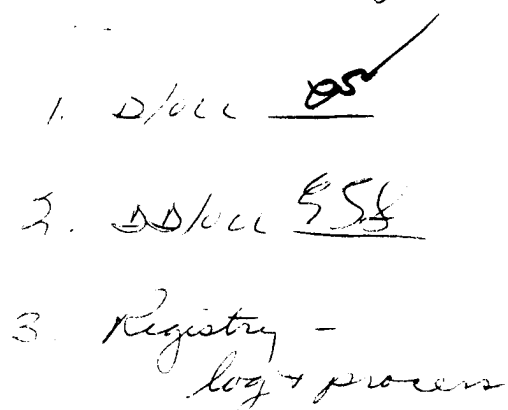 1. D/OLL
2. DD/OLL
3. Registry -
log + process